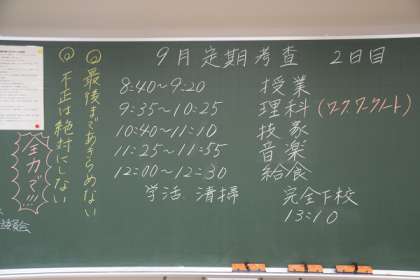 9月定期考査 2日目
8:40～9:20 授業
9:35～10:25 理科(ワーク.ワークノート)
10:40～11:10 技家
11:25～11:55 音楽
12:00～12:30 給食
学活.清掃 完全下校
13:10
②最後まであきらめない
①不正は絶対にしない
全力で!!!